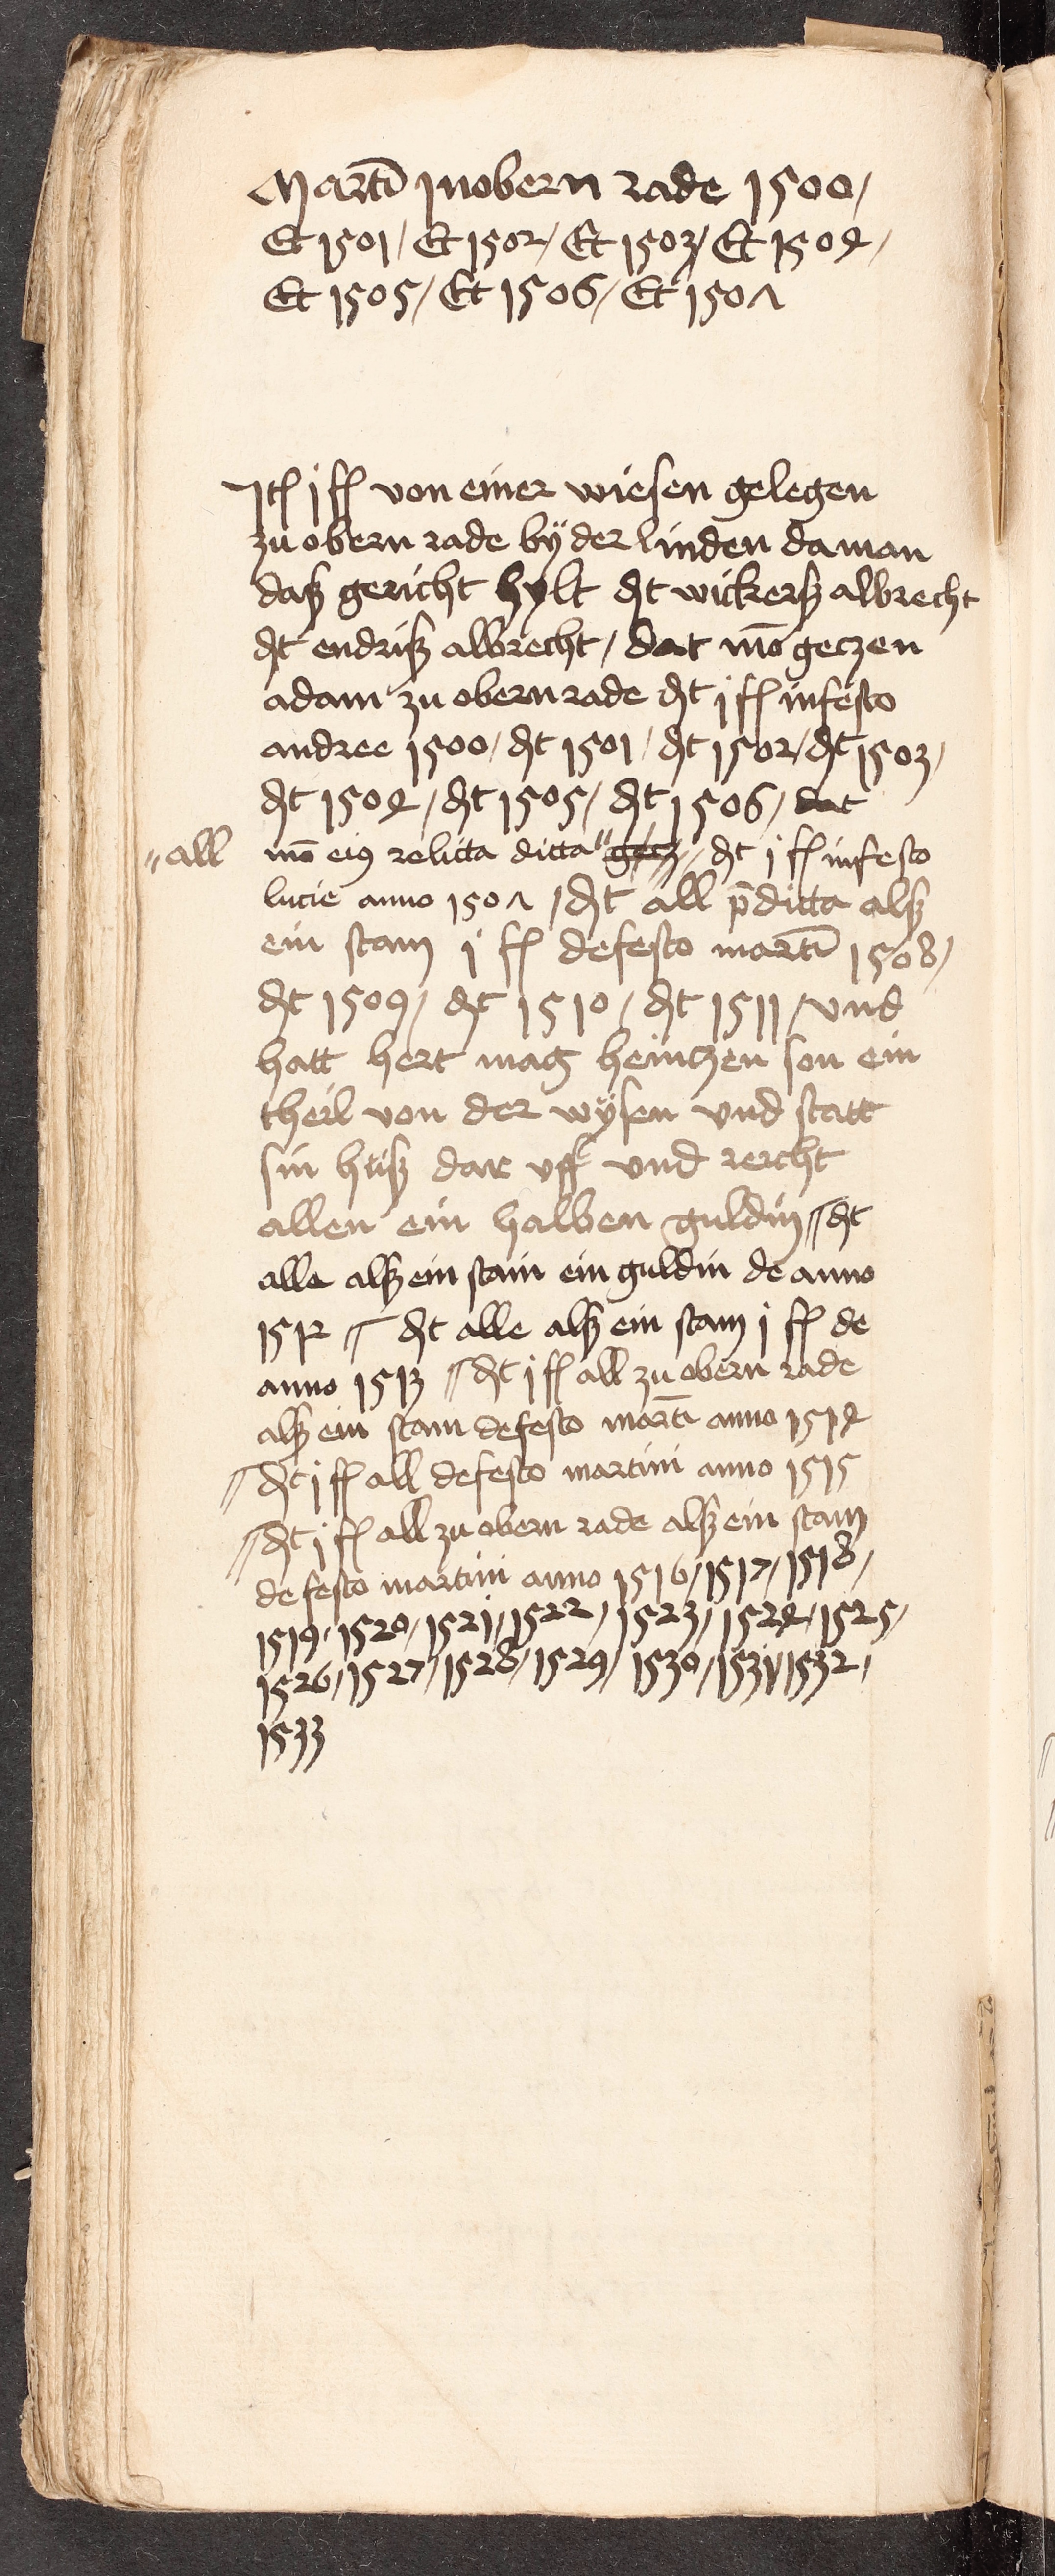 Martī Inobern rade 1500/
Et 1501/ Et 1502/ Et 1503/ Et 1504/
Et 1505/ Et 1506/ Et 1507
Itē j fl von einer wiesen gelegen
zu obern rade bÿ der linden da man
daß gericht hylt dt wickerß albrecht
dt endriß albrecht/ dat mō geczen
adam zu obern rade dt j fl infesto
andree 1500/ dt 1501/ dt 1502/ dt 1503/
dt 1504/ dt 1505/ dt 1506/ dat
"all mō eiꝯ relicta dicta " getz // dt j fl infesto
lucie anno 1507 / dt all p̄dicta alß
ein stam j fl defesto martī 1508/
dt 1509/ dt 1510/ dt 1511/ vnd
hatt hert mag heintzen son ein
theil von der wÿsen vnd statt
sin huß dar vff vnd reicht
allen ein halben guldin // dt
alle alß ein stain ein guldin de anno
1512 // dt alle alß ein stam j fl de
anno 1513 // dt j fl all zu obern rade
alß ein stam defesto martī anno 1514
// dt j fl all defesto martini anno 1515
// dt j fl all zu obern rade alß ein stam
de festo martini anno 1516/ 1517/ 1518/
1519/ 1520/ 1521/ 1522/ 1523/ 1524/ 1525/
1526/ 1527/ 1528/ 1529/ 1530/ 1531/ 1532/
1533